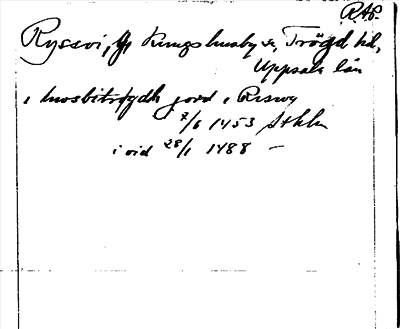 RAP.
Ryssvi, Kungshusby sn, Trögd hd,
Uppsala län
i hwsbitrøgdh jord i Rrswy
7/6 1453 Sthlm
i vid 28/1 1488 –